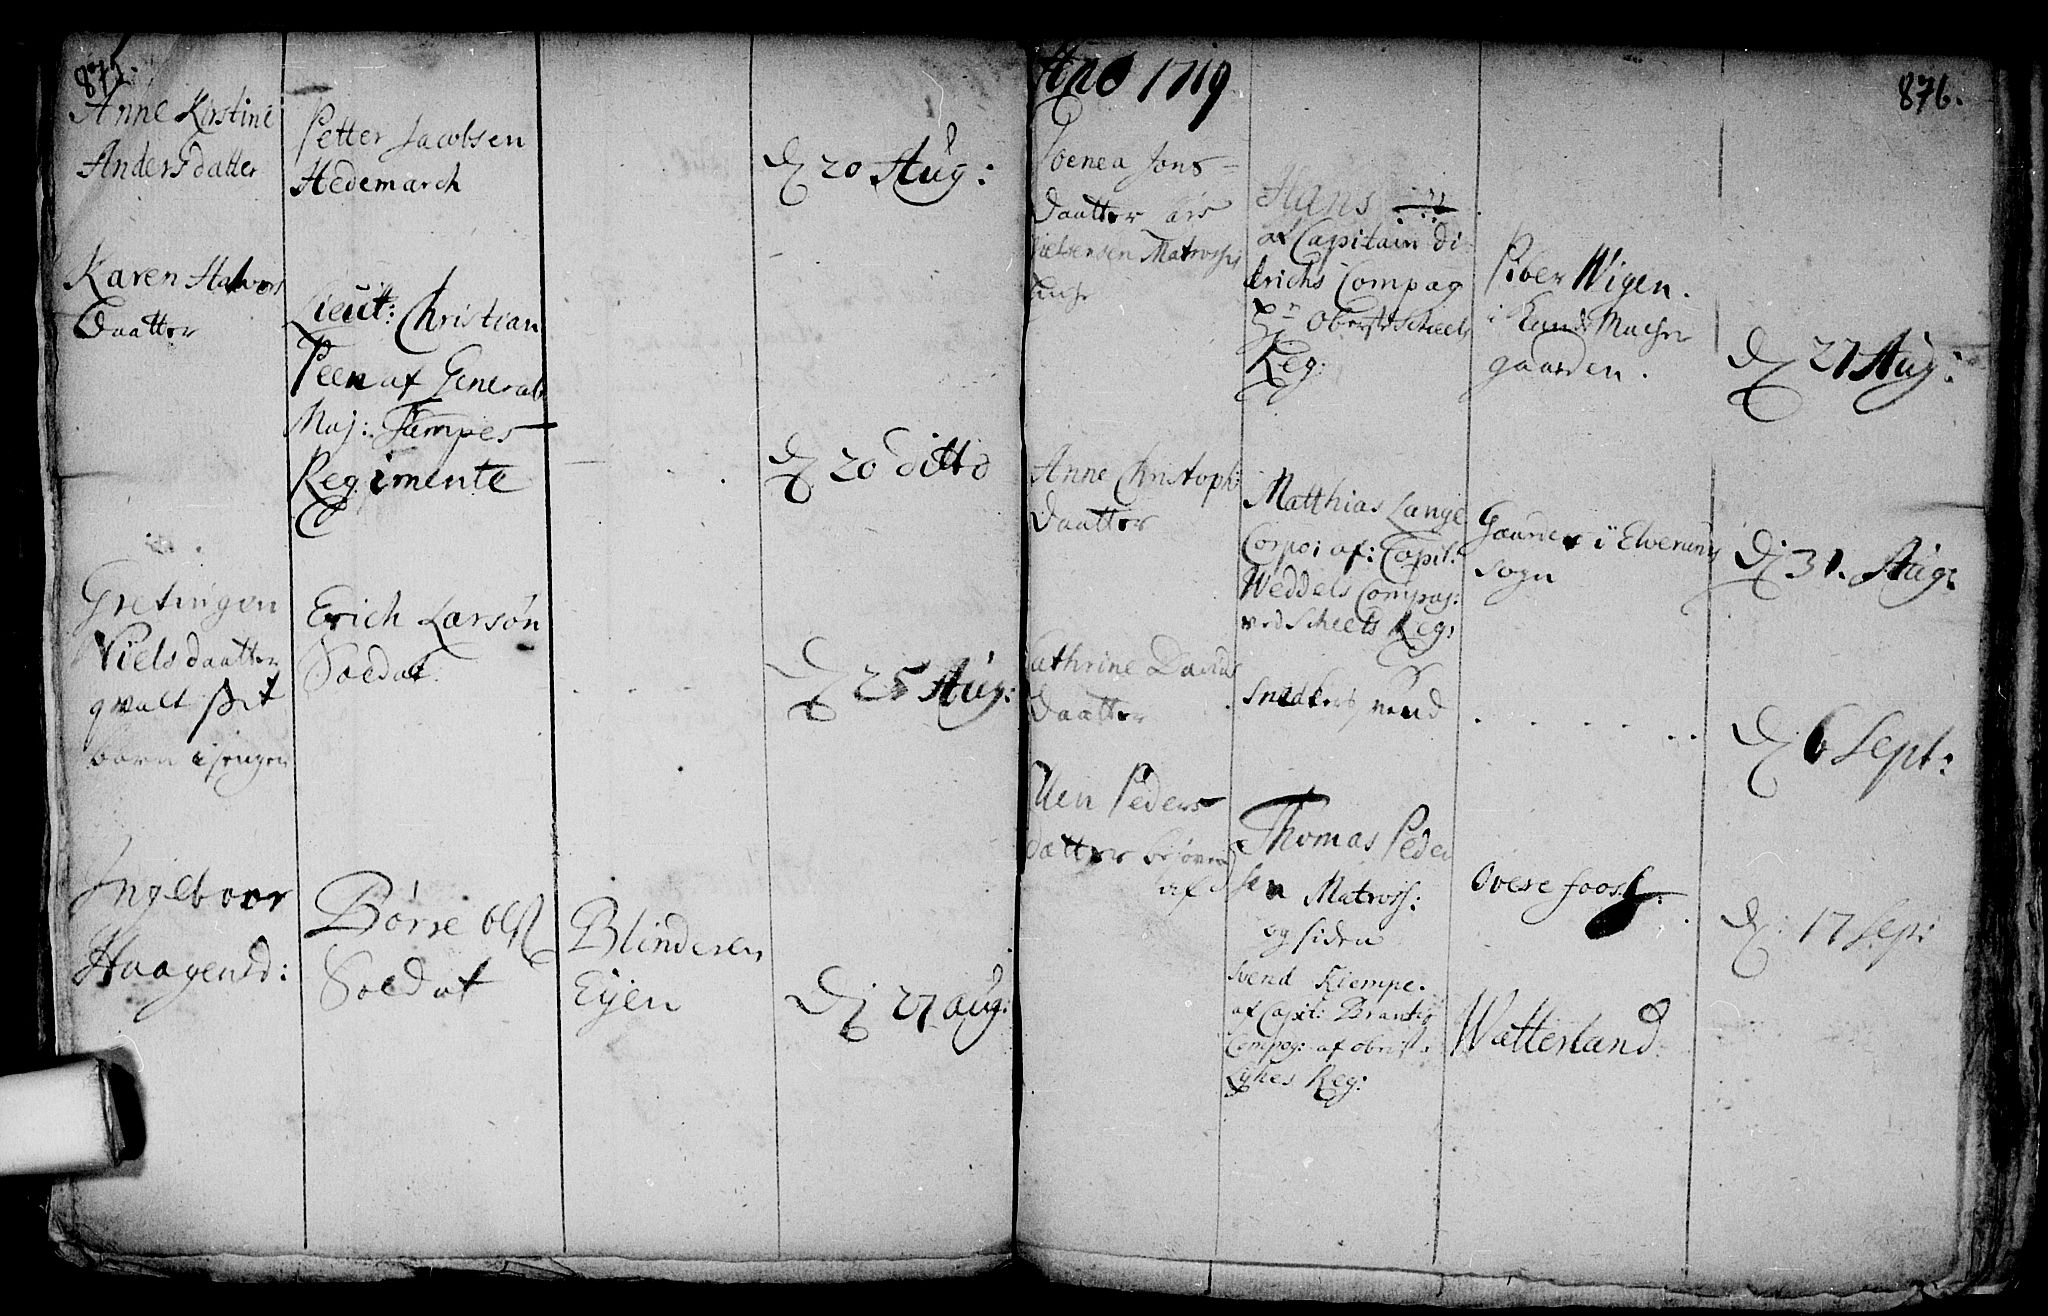 875.
Anne Kirstine
Andersdatter
Petter Jacobsen
Hedemarch
20 Aug:
Karen Halvors
Daatter
Lieut: Christian
Peen af General
Maj: Tampes
Regimente
20 Ditto
Gretingen
Niels daatter
qvalt sit
barn i sengen
Erich Larsøn
Soldat
25 Aug:
Ingeboor
Haagensd:
Børre Ols
Soldat
Blinderen
Eyen
27 aug:
Ano 1719
876.
Jons-
Daatter
Matrosses
Hans
af Capitain Di-
derichs Compag
Oberst Scheels
Reg:
Piber Wigen.
i
gaarden.
27 Aug:
Anne Christoph:
Daatter
Matthias Lange
Corpo: af: Capit:
Weddels Compag:
ved Scheels Reg:
Gaarder i Elverums
Sogn
31. Aug:
Cathrine Davids
Daatter
Snedkers, vend
6 Sept:
Ellen Peders
datter
af
Thomas Peder
sen Matross:
og siden
Svend Kiempe.
af Capit: Brantz
Compag: af obrist
Lykes Reg:
Overe foos
Watterland
17 Sep: